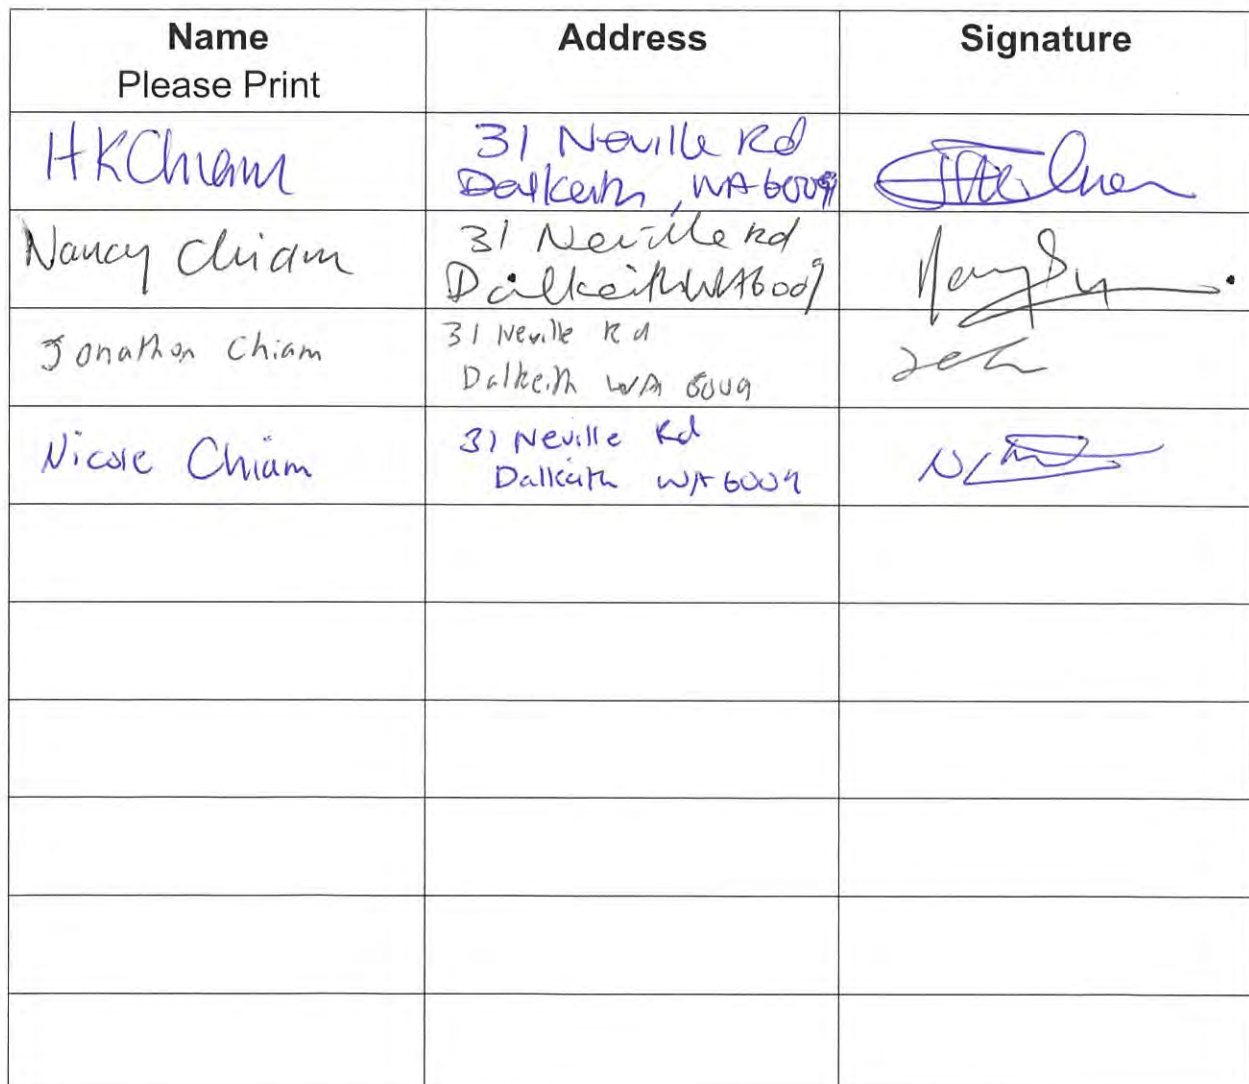 Name
Please Print
Address
Signature
HKChiam
31 Neville Rd
Dalkeith, WA 6009
Nancy Chiam
31 Neville Rd
Dalkeith WA 6009
Jonathon Chiam
31 Neville Rd
Dalkeith WA 6009
Nicole Chiam
31 Neville Rd
Dalkeith WA 6009